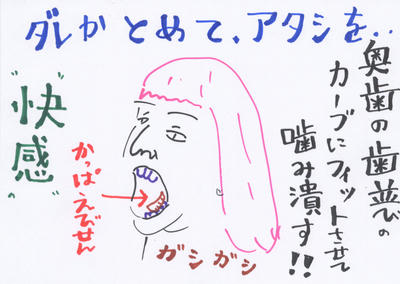 ダレかとめて、アタシを..
奥歯の歯並びの
カーブにフィットさせて
噛み潰す!!
"快感"
かっぱえびせん
ガシガシ